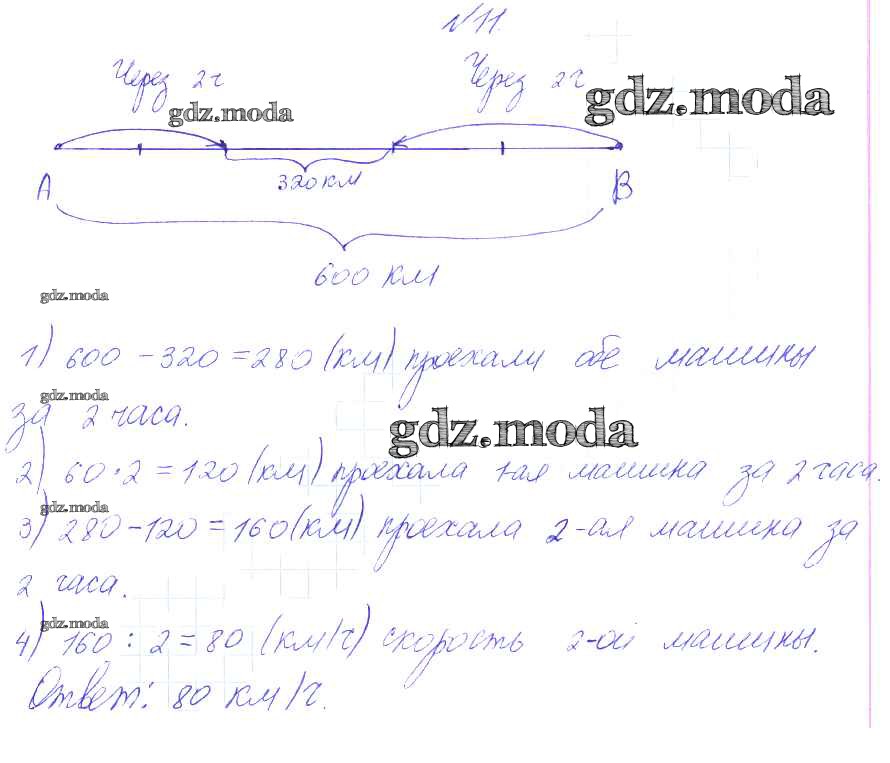 №11.
Через 2ч Через 2ч
gdz.moda gdz.moda
320 км
А В
600 км
gdz.moda
1) 600 - 320 = 280 (км) проехали обе машины
gdz.moda
за 2 часа.
gdz.moda
2) 60 · 2 = 120 (км) проехала 1-ая машина за 2 часа.
gdz.moda
3) 280 - 120 = 160 (км) проехала 2-ая машина за
2 часа.
gdz.moda
4) 160 : 2 = 80 (км/ч) скорость 2-ой машины.
Ответ: 80 км/ч.